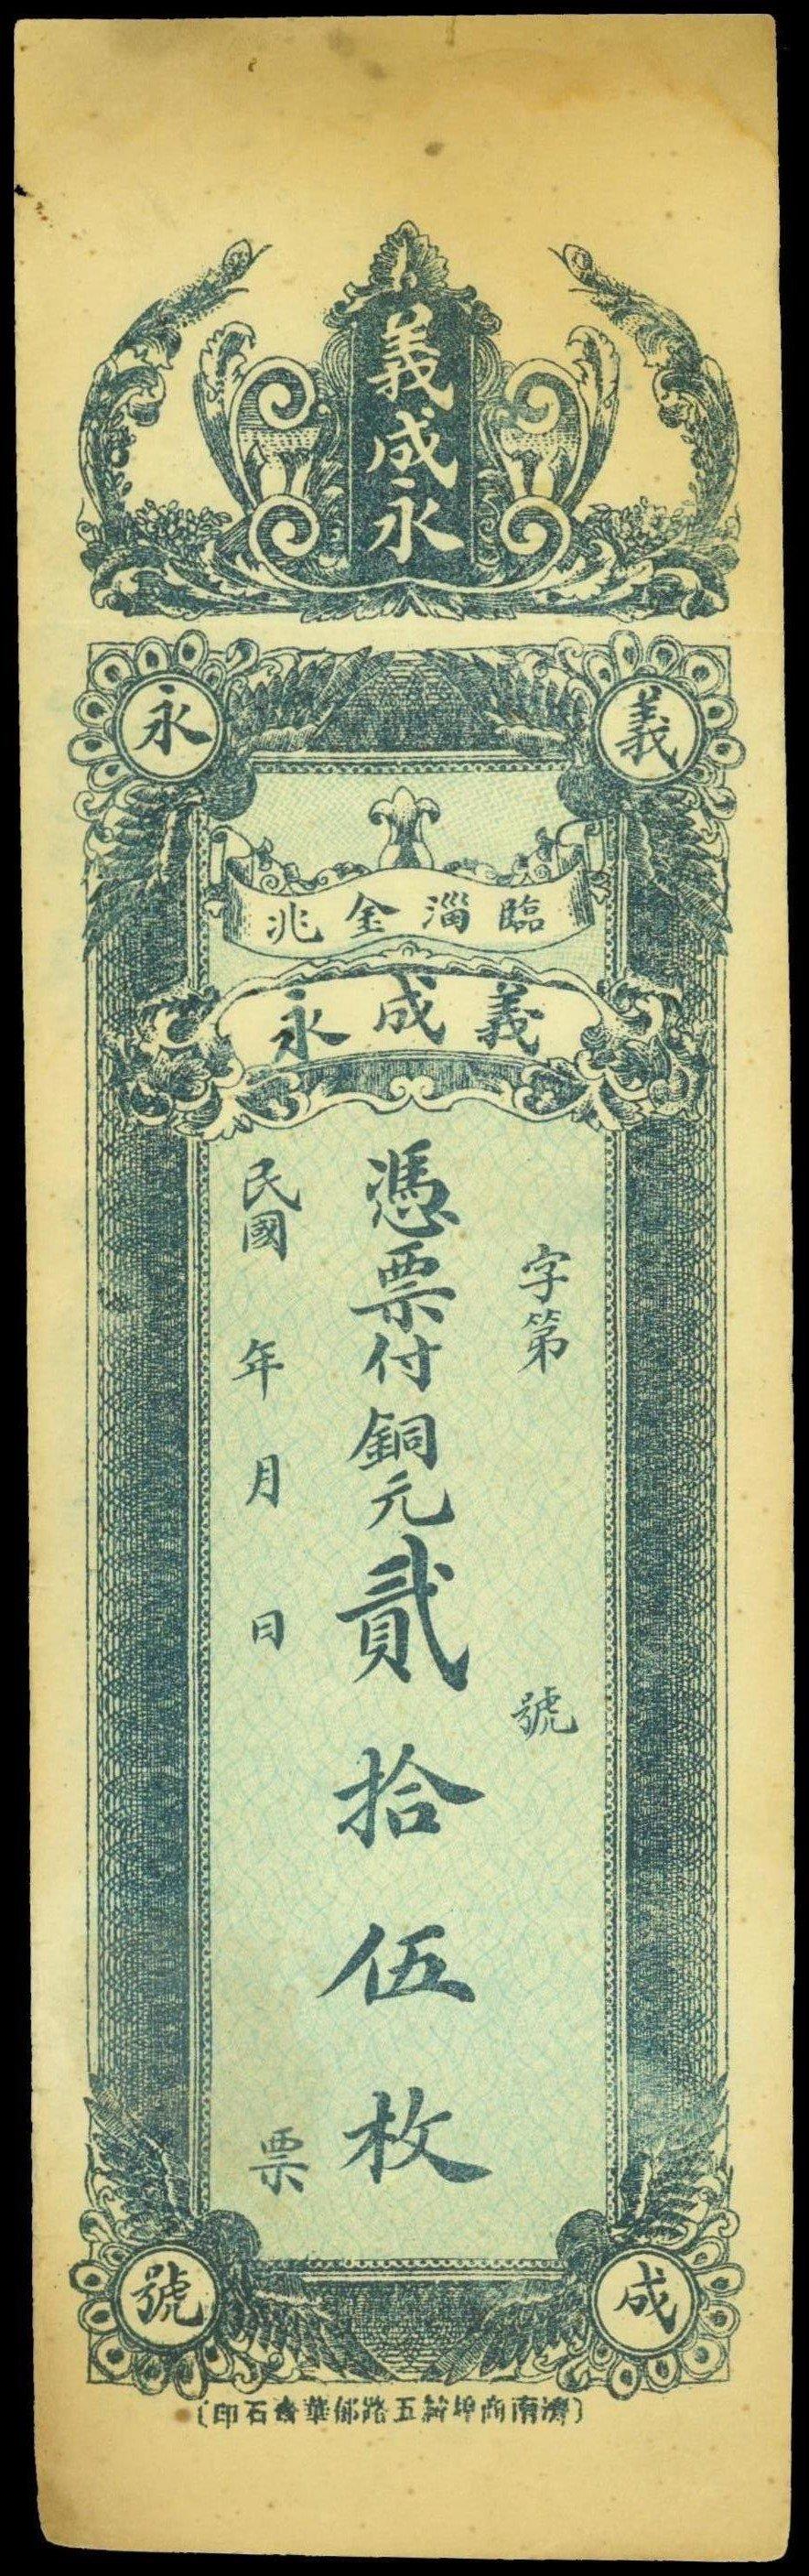 義成永
義
永
臨淄金兆
義成永
字第 號
憑票付銅元貳拾伍枚
民國 年 月 日 票
成
號
濟南商埠緯五路郁華齋石印